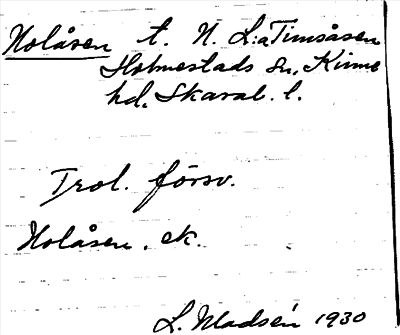 Holåsen t. N. L:a Timsåsen
Holmestads sn. Kinne
hd. Skarab. l.
Trol. försv.
Holåsen. ek.
L. Madsén 1930